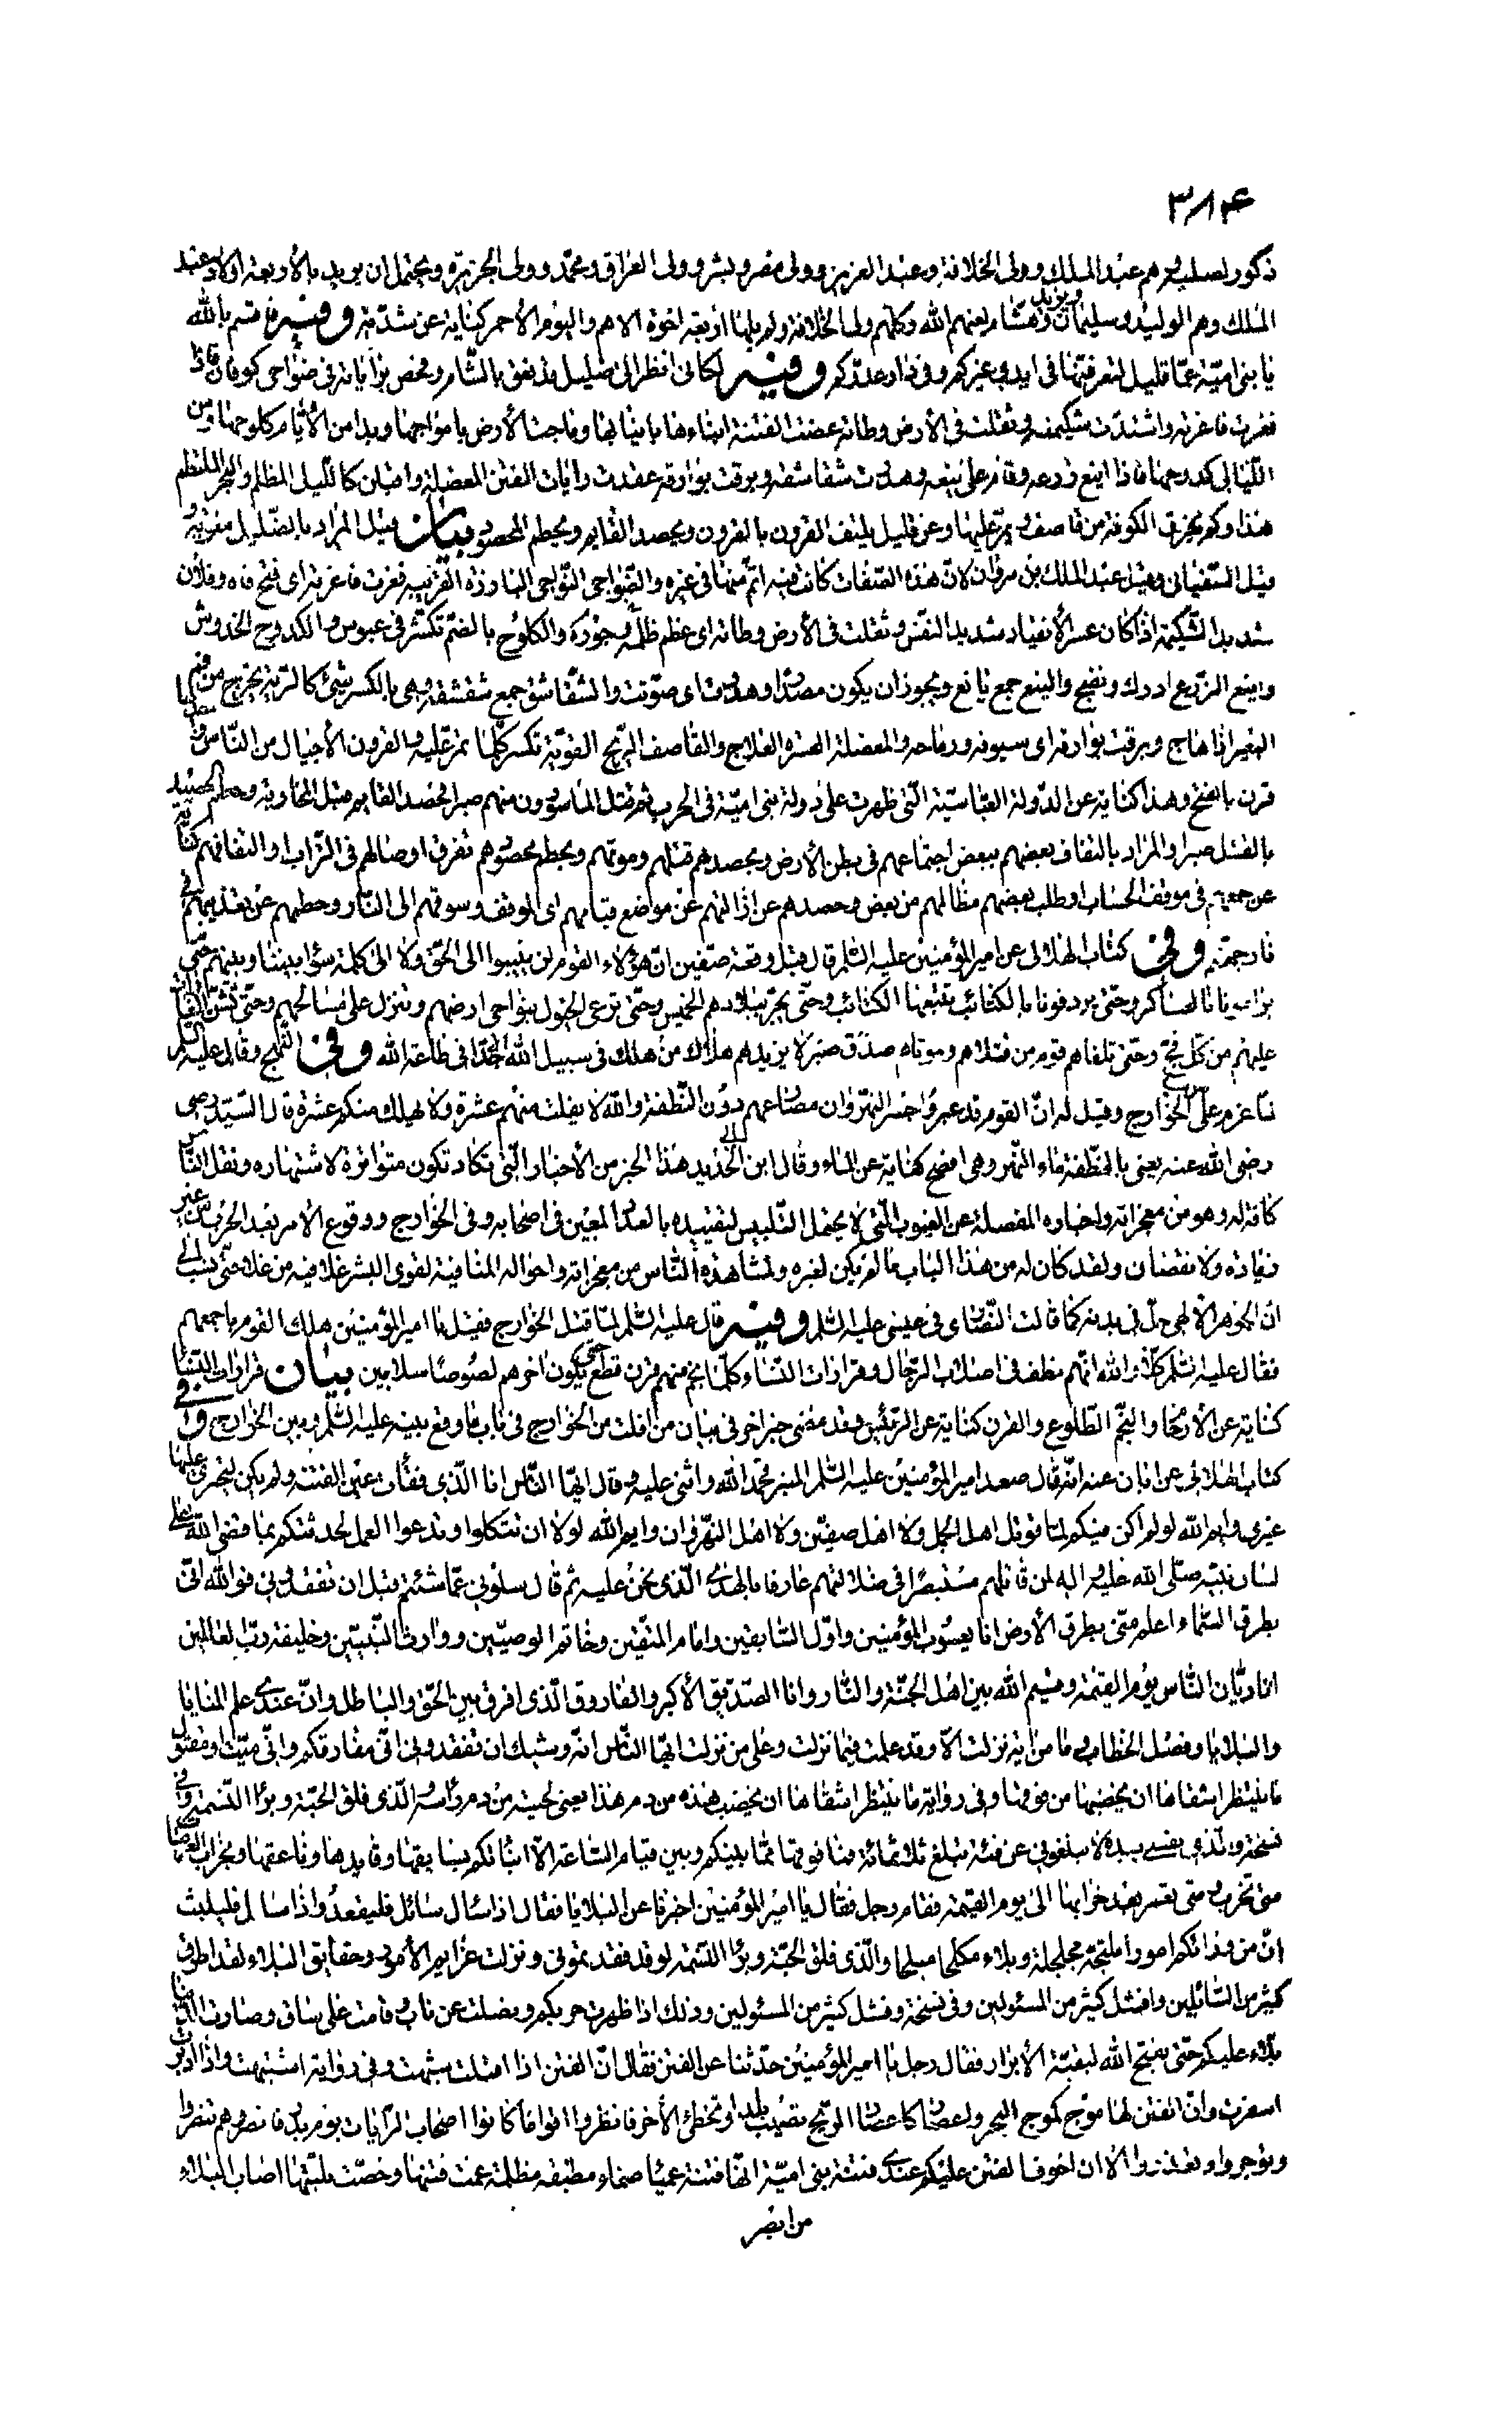 ٣٨٤
ذكور لصلبه هم عبد الملك وولى الخلافة وعبد العزيز وولى مصر وبشر وولى العراق ومحمد وولى الجزيرة ويحتمل ان يريد بالأربعة اولاد عبد
الملك وهم الوليد وسليمان ويزيد وهشام لعنهم الله وكلهم ولى الخلافة ولم يلها اربعة اخوة الا هم واليوم الأحمر كناية عن شدته وفيه فاقسم بالله
يا بنى امية عما قليل لتعرفنها فى ايدى غيركم وفى دار عدوكم وفيه لكانى انظر الى ضليل قد نعق بالشام وفحص براياته فى ضواحى كوفان فاذا
فغرت فاغرته واشتدت شكيمته وثقلت فى الأرض وطاته عضت الفتنة ابناءها بانيابها وماجت الأرض بامواجها وبدا من الأيام كلوحها ومن
الليالى كدوحها فاذا اينع زرعه وقام على ينعه وهدرت شقاشقه وبرقت بوارقه عقدت رايات الفتن المعضلة واقبلن كالليل المظلم والبحر الملتطم
هذا وكم يخرق الكوفة من قاصف ويمر عليها وعن قليل يلتف القرون بالقرون ويحصد القايم ويحطم المحصود بيان قيل المراد بالضليل معوية و
قيل السفيانى وقيل عبد الملك بن مروان لان هذه الصفات كانت فيه اتم منها فى غيره والضواحى النواحى البارزة القريبة فغرت فاغرته اى فتح فاه وفلان
شديد الشكيمة اذا كان عسر الأنقياد شديد النفس وثقلت فى الأرض وطاته اى عظم ظلمه وجوره والكلوح بالضم تكشر فى عبوس والكدوح الخدوش
واينع الزرع ادرك ونضج والينع جمع يانع ويجوز ان يكون مصدرا وهدرت اى صوتت والشقاشق جمع شقشقة وهى بالكسر شىء كالرية يخرج من فم
البعير اذا هاج وبرقت بوارقه اى سيوفه ورماحه والمعضلة العسرة العلاج والقاصف الريح القوية تكسر كلما تمر عليه والقرون الأجيال من الناس
قرن بالفتح وهذا كناية عن الدولة العباسية التى ظهرت على دولة بنى امية فى الحرب ثم قتل المأسورون منهم صبرا فحصد القايم قبل المحاربة وحطم الحصيد
بالقتل صبرا والمراد بالتفاف بعضهم ببعض اجتماعهم فى بطن الأرض وبحصدهم قتلهم وموتهم وبحطم محصودهم تفرق اوصالهم فى التراب او التفافهم كناية
عن جمعهم فى موقف الحساب او طلب بعضهم مظالمهم من بعض وحصدهم عن ازالتهم عن مواضع قيامهم اى الموقف وسوقهم الى النار وحطمهم عن تعذيبهم فى
نار جهنم وفى كتاب الهلالى عن امير المؤمنين عليه السلم قال قبل وقعة صفين ان هؤلاء القوم لن ينيبوا الى الحق ولا الى كلمة سواء بيننا وبينهم حتى
يرموا بالعساكر وحتى يردفونا بالكتائب تتبعها الكتائب وحتى يجر ببلادهم الخميس وحتى ترعى الخيول بنواحى ارضهم وتنزل على مسالحهم وحتى تشن الغارات
عليهم من كل فج وحتى تلقاهم قوم من قتلاهم وموتاهم صدق صبر لا يزيدهم هلاك من هلك فى سبيل الله الا جدا فى طاعة الله وفى النهج وقال عليه السلم
لما عزم على حرب الخوارج وقيل له ان القوم قد عبروا جسر النهروان مصارعهم دون النطفة والله لا يفلت منهم عشرة ولا يهلك منكم عشرة قال السيد رضى
رضى الله عنه يعنى بالنطفة ماء النهر وهى افصح كناية عن الماء وقال ابن ابى الحديد هذا الخبر من الأخبار التى تكاد تكون متواترة لاشتهاره ونقل الناس
كافة له وهو من معجزاته واخباره المفصلة عن الغيوب التى لا يحتمل التلبيس لتقييده بالعدد المعين فى اصحابه وفى الخوارج ووقوع الأمر بعد الحرب من غير
زيادة ولا نقصان ولقد كان له من هذا الباب ما لم يكن لغيره ولمشاهدة الناس من معجزاته واحواله المنافية لقوى البشر غلا فيه من غلا حتى نسب الى
ان الجوهر الألهى حل فى بدنه كما قالت النصارى فى عيسى عليه السلم وفيه قال عليه السلم لما قتل الخوارج فقيل يا امير المؤمنين هلك القوم باجمعهم
فقال عليه السلم كلا والله انهم نطف فى اصلاب الرجال وقرارات النساء كلما نجم منهم قرن قطع حتى يكون اخرهم لصوصا سلابين بيان قرارات النساء
كناية عن الأرحام والنجم الطلوع والقرن كناية عن الرئيس وقد مضى خبر اخر فى بيان من افلت من الخوارج فى باب ما وقع بينه عليه السلم وبين الخوارج وفى
كتاب الهلالى عن ابان عنه انه قال صعد امير المؤمنين عليه السلم المنبر فحمد الله واثنى عليه وقال ايها الناس انا الذى فقأت عين الفتنة ولم يكن ليجترئ عليها
غيرى وايم الله لو لم اكن فيكم لما قوتل اهل الجمل ولا اهل صفين ولا اهل النهروان وايم الله لولا ان تتكلوا وتدعوا العمل لحدثتكم بما قضى الله على
لسان نبيه صلى الله عليه واله لمن قاتلهم مستبصرا فى ضلالتهم عارفا بالهدى الذى نحن عليه ثم قال سلونى عما شئتم قبل ان تفقدونى فوالله انى
بطرق السماء اعلم منى بطرق الأرض انا يعسوب المؤمنين واول السابقين وامام المتقين وخاتم الوصيين ووارث النبيين وخليفة رب العالمين
انا ديان الناس يوم القيمة وقسيم الله بين اهل الجنة والنار وانا الصديق الأكبر والفاروق الذى افرق بين الحق والباطل وان عندى علم المنايا
والبلايا وفصل الخطاب وما من اية نزلت الا وقد علمت فيما نزلت وعلى من نزلت ايها الناس انه وشيك ان تفقدونى انى مفارقكم وانى ميت او مقتول
ما ينتظر اشقاها ان يخضبها من فوقها وفى رواية ما ينتظر اشقاها ان يخضب هذه من دم هذا يعنى لحيته من دم رأسه والذى فلق الحبة وبرأ النسمة وفى
نسخة والذى نفسى بيده لا تبلغونى عن فئة تبلغ ثلثمائة فما فوقها مما بينكم وبين قيام الساعة الا انبأتكم بسايقها وقايدها وناعقها وبخراب العرصات
متى تخرب ومتى تعمر بعد خرابها الى يوم القيمة فقام رجل فقال يا امير المؤمنين اخبرنا عن البلايا فقال اذا سال سائل فليعقل واذا سئل فليلبث
ان من ورائكم امورا ملتجة مجلجلة وبلاء مكلحا مبلحا والذى فلق الحبة وبرأ النسمة لو قد فقدتمونى ونزلت عزايم الأمور وحقايق البلاء لقد اطرق
كثير من السائلين وافشل كثير من المسئولين وفى نسخة وفشل كثير من المسئولين وذلك اذا ظهرت حربكم ونصلت عن ناب وقامت على ساق وصارت الدنيا
بلاء عليكم حتى يفتح الله لبقية الأبرار فقال رجل يا امير المؤمنين حدثنا عن الفتن فقال ان الفتن اذا اقبلت شبهت وفى رواية اشتبهت واذا ادبرت
اسفرت وان الفتن لها موج كموج البحر واعصار كاعصار الريح تصيب بلدا وتخطئ الأخر فانظروا اقواما كانوا اصحاب الرايات يوم بدر فانصروهم تنصروا
وتوجروا وتعذروا الا ان اخوف الفتن عليكم عندى فتنة بنى امية انها فتنة عمياء صماء مطبقة مظلمة عمت فتنتها وخصت بليتها اصاب البلاء
من ابصر